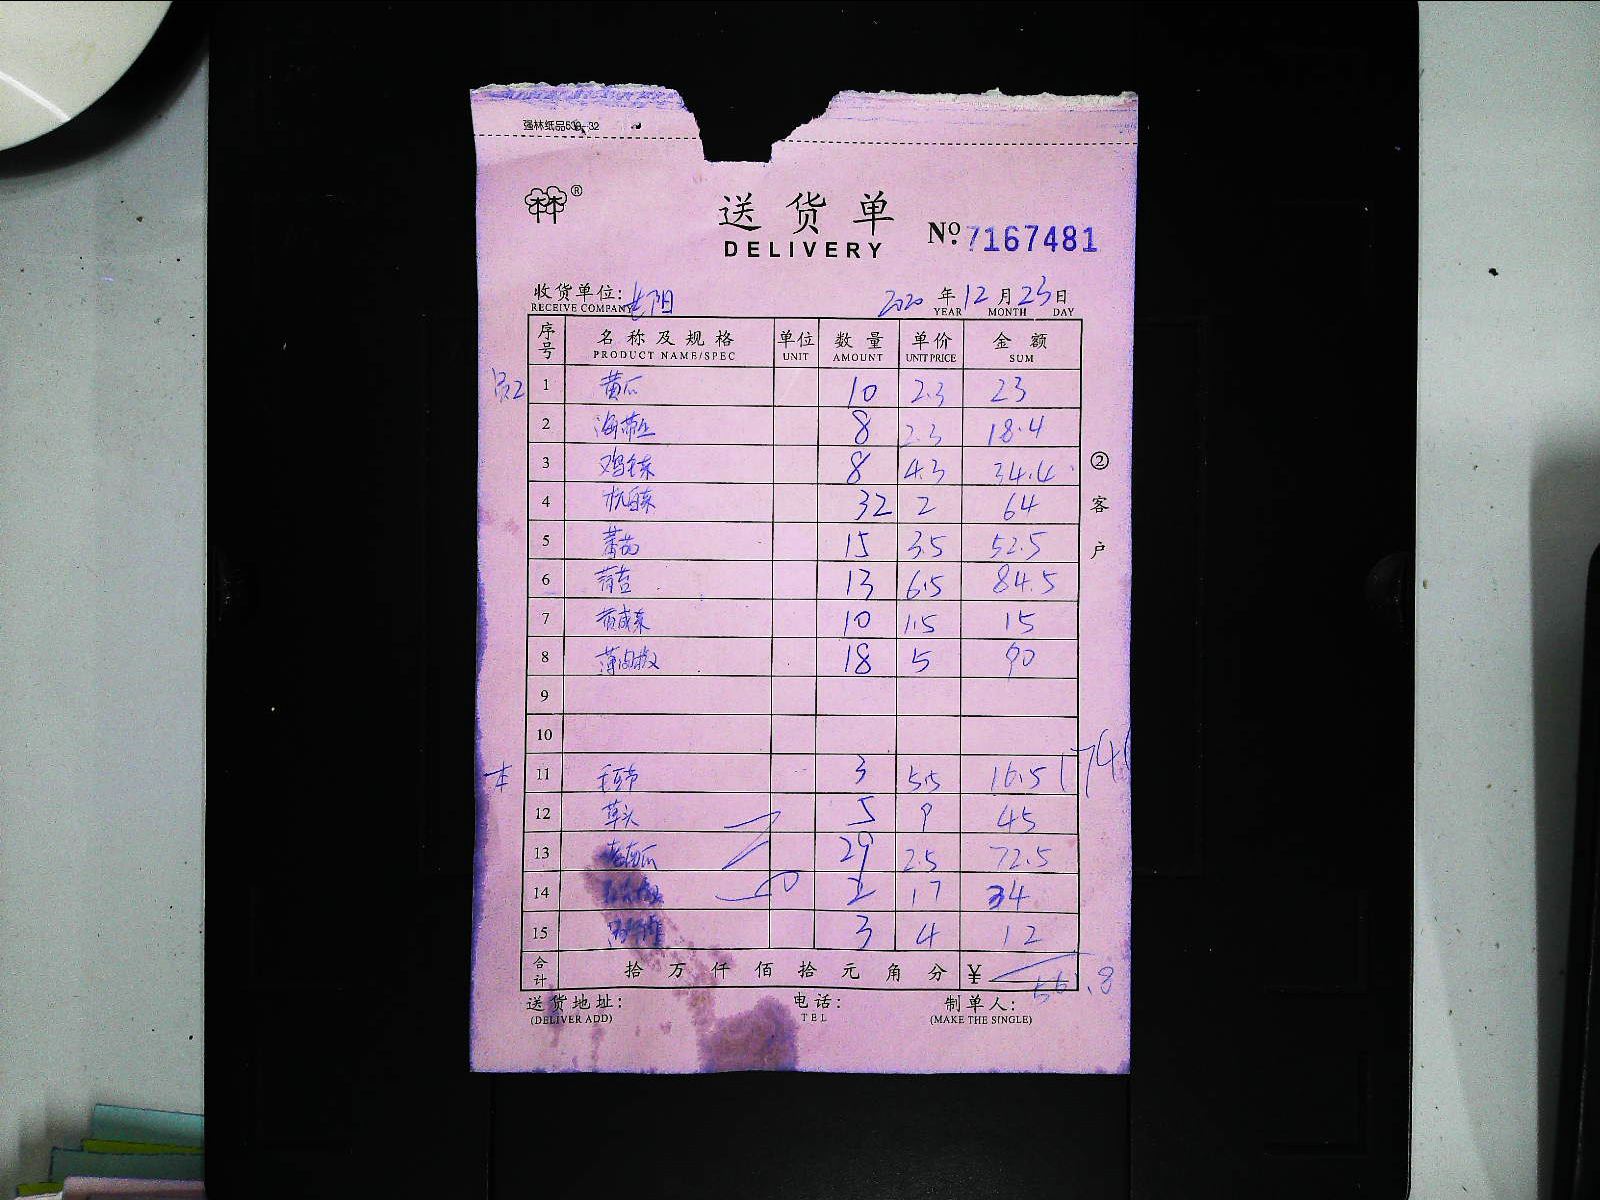 强林纸品539-32
林®
送货单
DELIVERY
№ 7167481
收货单位: 老阳 2020 年 12 月 23 日
RECEIVE COMPANY YEAR MONTH DAY
序号 名称及规格 单位 数量 单价 金额
PRODUCT NAME/SPEC UNIT AMOUNT UNIT PRICE SUM
1 黄瓜 10 2.3 23
2 海带丝 8 2.3 18.4
3 鸡毛菜 8 4.3 34.4
4 杭白菜 32 2 64
5 蕃茄 15 3.5 52.5
6 莴苣 13 6.5 84.5
7 黄咸菜 10 1.5 15
8 薄肉椒 18 5 90
9
10
本 11 毛豆节 3 5.5 16.5
12 草头 5 9 45
13 老南瓜 29 2.5 72.5
14 2 17 34
15 3 4 12
合计 拾万仟佰拾元角分 ¥
送货地址: 电话: 制单人:
(DELIVER ADD) TEL (MAKE THE SINGLE)
②客户